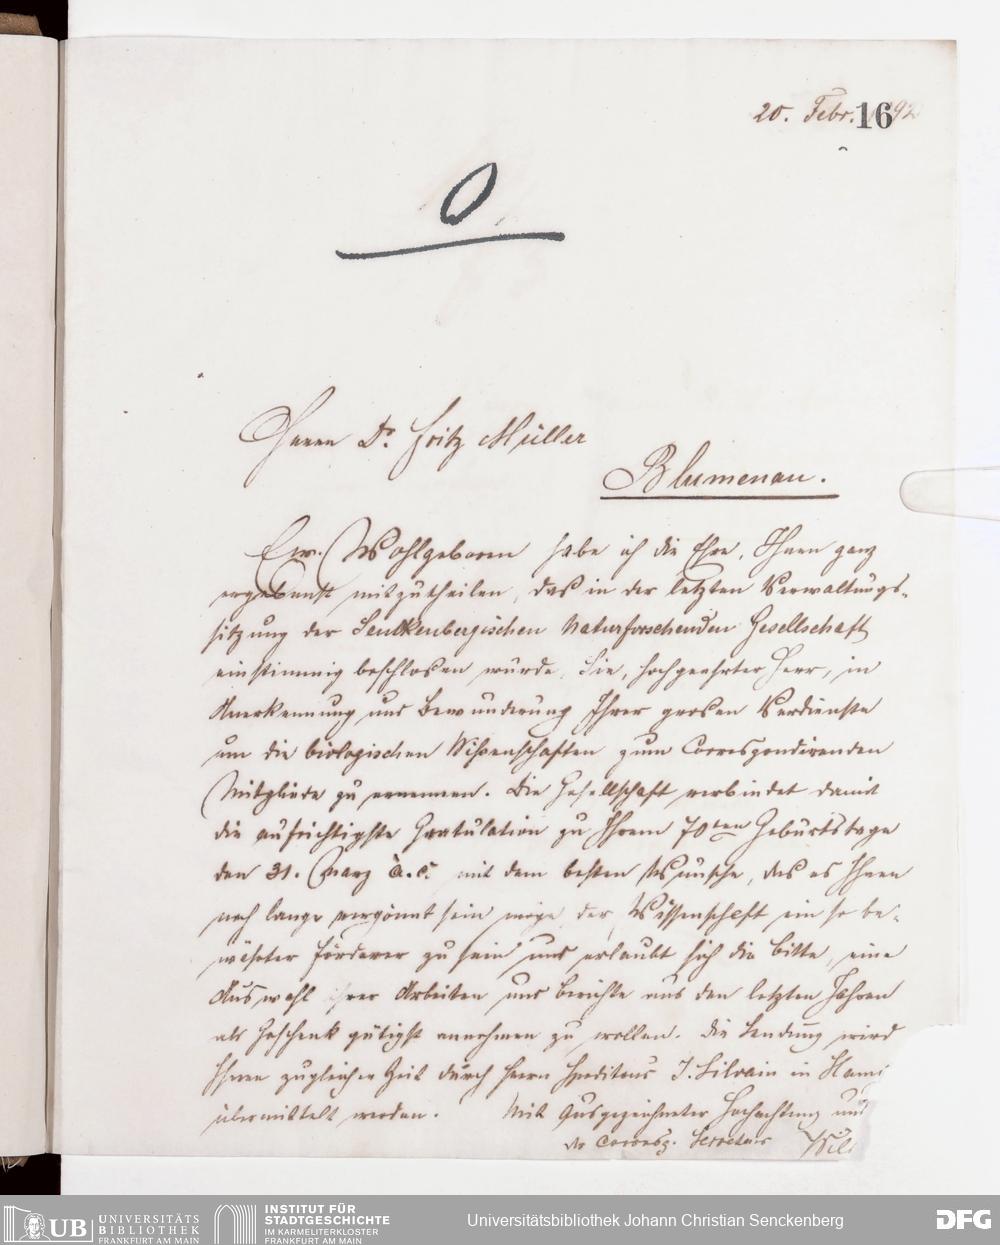 20. Febr. 1692
O
Herrn Dr. Fritz Müller
Blumenau.
Ew. Wohlgeboren habe ich die Ehre, Ihnen ganz
ergebenst mitzutheilen, das in der letzten Verwaltungs-
sitzung der Senckenbergischen Naturforschenden Gesellschaft
einstimmig beschlossen wurde, Sie, hochgeehrter Herr, in
Anerkennung und Bewunderung Ihrer grosen Verdienste
um die biologischen Wissenschaften zum Correspondirenden
Mitgliede zu ernennen. Die Gesellschaft verbindet damit
die aufrichtigste Gratulation zu Ihrem 70ten Geburtstage
den 31. März a. c. mit dem besten Wunsche, das es Ihnen
noch lange vergönnt sein möge der Wissenschaft ein so be-
währter Förderer zu sein und erlaubt sich die Bitte, eine
Auswahl ihrer Arbeiten und Berichte aus den letzten Jahren
als Geschenk gütigst annehmen zu wollen. Die Sendung wird
Ihnen zugleicher Zeit durch Herrn Spediteur J. Silvain in Ham
übermittelt werden. Mit Ausgezeichneter Hochachtung und
der Corresp. Secretair
UB UNIVERSITÄTS
BIBLIOTHEK
FRANKFURT AM MAIN
INSTITUT FÜR
STADTGESCHICHTE
IM KARMELITERKLOSTER
FRANKFURT AM MAIN
Universitätsbibliothek Johann Christian Senckenberg
DFG